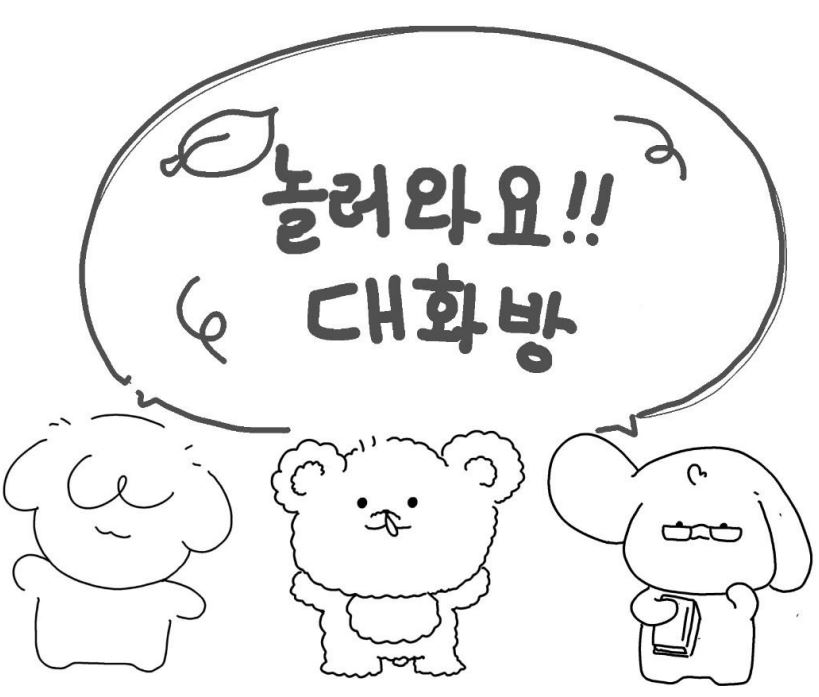 놀러와요!!
대화방